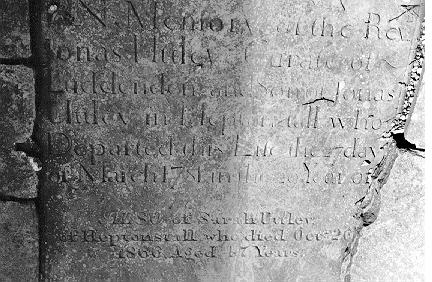 IN Memory of the Rev
Jonas Utley Curate of
Luddenden and Son of Jonas
Utley in Heptonstall who
Departed this Life the 27 day
of March 178 in the Year of
ALSO of Sarah Utley
of Heptonstall who died Oct 20
1806 Aged 47 Years.